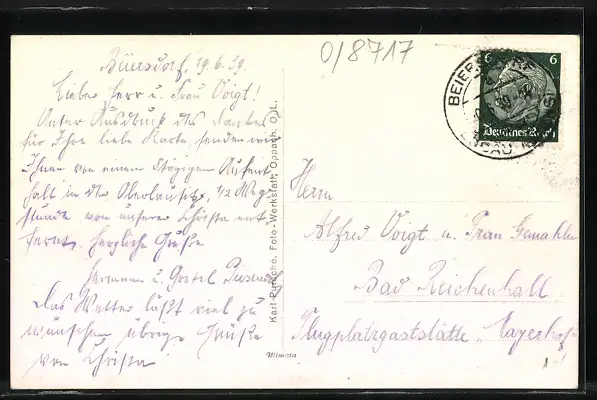 0/8717
Beiersdorf, 19.6.39.
Liebe Herr u. Frau Voigt!
Unter Ausdruck des Dankes
für Ihre liebe Karte, senden wir
Ihnen von einem 8tägigen Aufent
halt in der Oberlausitz, 1/2 Weg-
stunde von unserer Christa ent
fernt, herzliche Grüße
Hermann u. Gretel
Das Wetter läßt viel zu
wünschen übrig. Grüße
von Christa
Karl Putsche, Foto-Werkstatt, Oppach, O.-L.
Mimosa
BEIERSDORF
6 6
Deutsches Reich
Herrn
Alfred Voigt u. Frau Gemahlin
Bad Reichenhall
Flugplatzgaststätte, Mayerhof